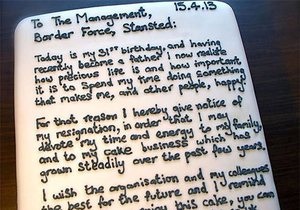 To The Management, 15.4.13
Border Force, Stansted:
Today is my 31st birthday, and having
recently become a father I now realise
how precious life is and how important
it is to spend my time doing something
that makes me, and other people, happy
For that reason I hereby give notice of
my resignation, in order that I may
devote my time and energy to my family,
and to my cake business which has
grown steadily over the past few years.
I wish the organisation and my colleagues
the best for the future and I remind
enjoy this cake, you can